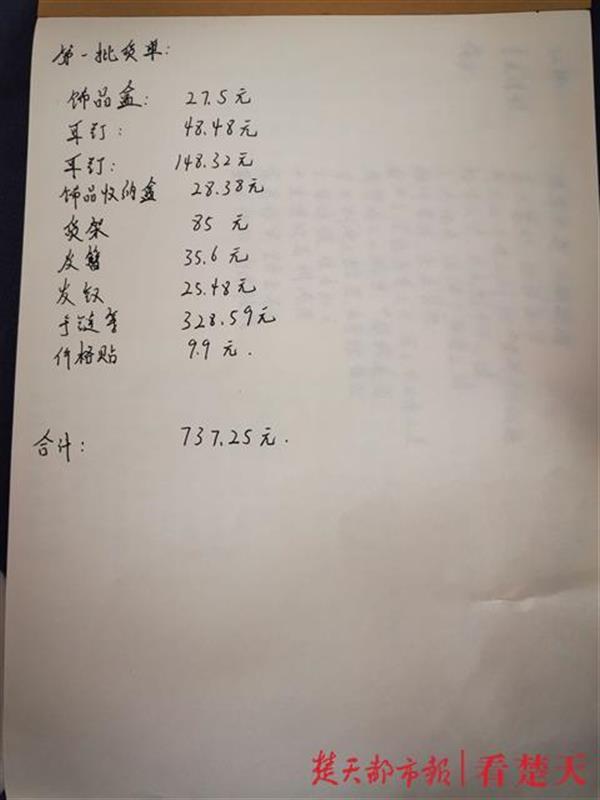 第一批货单:
饰品盒: 27.5元
耳钉: 48.48元
耳钉: 148.32元
饰品收纳盒 28.38元
货架 85 元
发簪 35.6元
发钗 25.48元
手链等 328.59元
价格贴 9.9元.
合计: 737.25元.
楚天都市報|看楚天